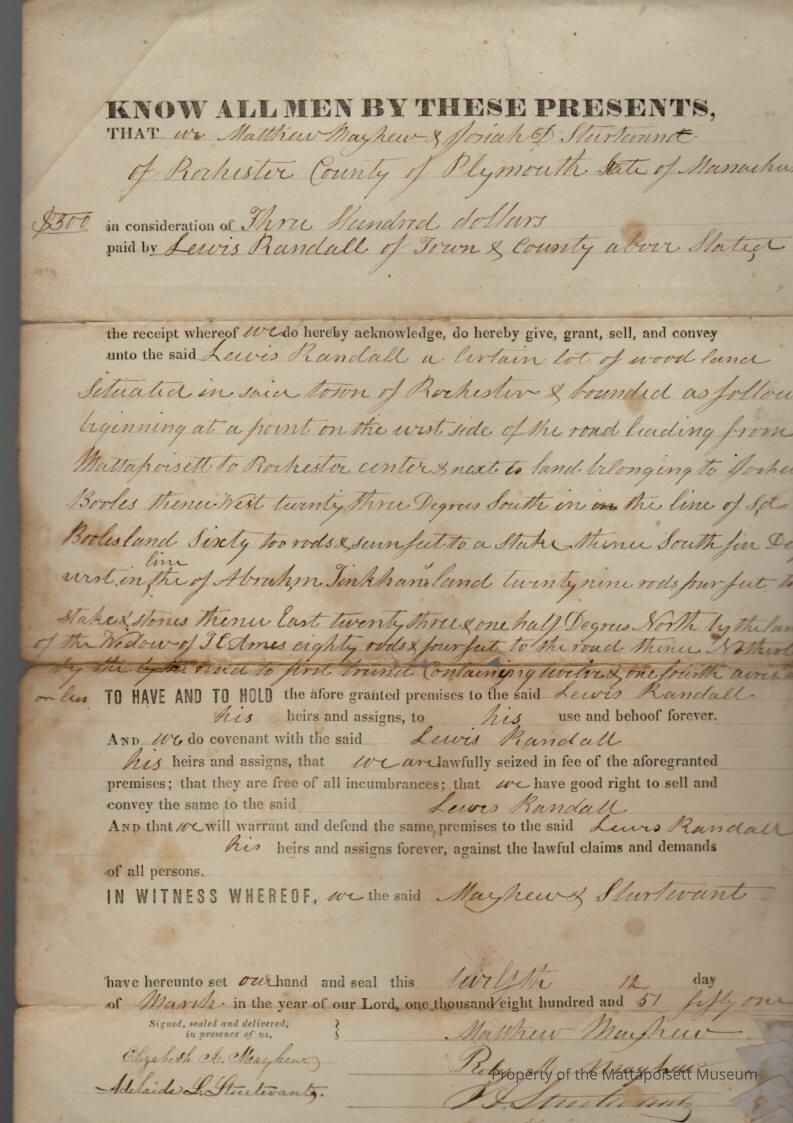 KNOW ALL MEN BY THESE PRESENTS,
THAT we Matthew Mayhew & Josiah Sturtevant
of Rochester County of Plymouth State of Massachu
$300 in consideration of Three Hundred dollars
paid by Lewis Randall of Town & County above Stated
the receipt whereof we do hereby acknowledge, do hereby give, grant, sell, and convey
unto the said Lewis Randall a certain lot of wood land
situated in said town of Rochester & bounded as follow
beginning at a point on the west side of the road leading from
Mattapoisett to Rochester center & next to land belonging to
Booles thence West twenty three Degrees South in in the line of sd
Booles land Sixty too rods & seven feet to a Stake thence South five De
line
west in the of Abraham Tinkham's land twenty nine rods four feet to
stake & stones thence East twenty three & one half Degrees North by the lan
of the Widow of Ames eighty rods & four feet to the road thence
by the by the road to first bound Containing twelve & one fourth acres
or less TO HAVE AND TO HOLD the afore granted premises to the said Lewis Randall
his heirs and assigns, to his use and behoof forever.
AND we do covenant with the said Lewis Randall
his heirs and assigns, that we are lawfully seized in fee of the aforegranted
premises; that they are free of all incumbrances; that we have good right to sell and
convey the same to the said Lewis Randall
AND that we will warrant and defend the same premises to the said Lewis Randall
his heirs and assigns forever, against the lawful claims and demands
of all persons.
IN WITNESS WHEREOF, we the said Mayhew & Sturtevant
have hereunto set our hand and seal this twelfth 12 day
of March in the year of our Lord, one thousand eight hundred and 51 fifty one
Signed, sealed and delivered,
in presence of us,
Matthew Mayhew
Elizabeth A. Mayhew
Mayhew
Adelaide L. Sturtevant
Sturtevant
Property of the Mattapoisett Museum